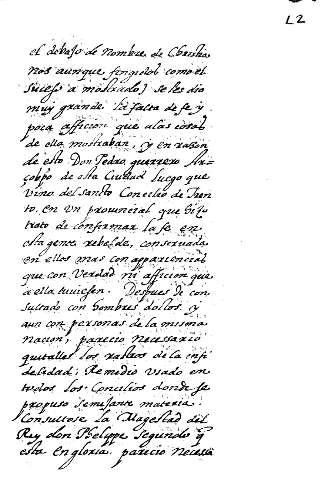 L2
el debajo de nombre de Christia
nos aunque fingidos como el
sucesso a mostrado) se les dio
muy grande la falta de fe y
poca afficion que a las cosas
de ella mostraban, y en razon
de esto Don Pedro guerrero Ar=
çobpo de esta Ciudad luego que
vino del Santo Concilio de Tren
to. en un provincial que hizo
trato de confirmar la fe en
esta gente rebelde, conservada
en ellos mas con apparencias
que con verdad ni afficion que
a ella tuviesen. Despues de con
sultado con hombres doctos. y
aun con personas de la misma
nacion, parecio necessario
quitalles los rastros de la infi
delidad; Remedio usado en
todos los Concilios donde se
propuso semejante materia.
Consultose la Magestad del
Rey don Phelippe Segundo q
esta en gloria. parecio necessa